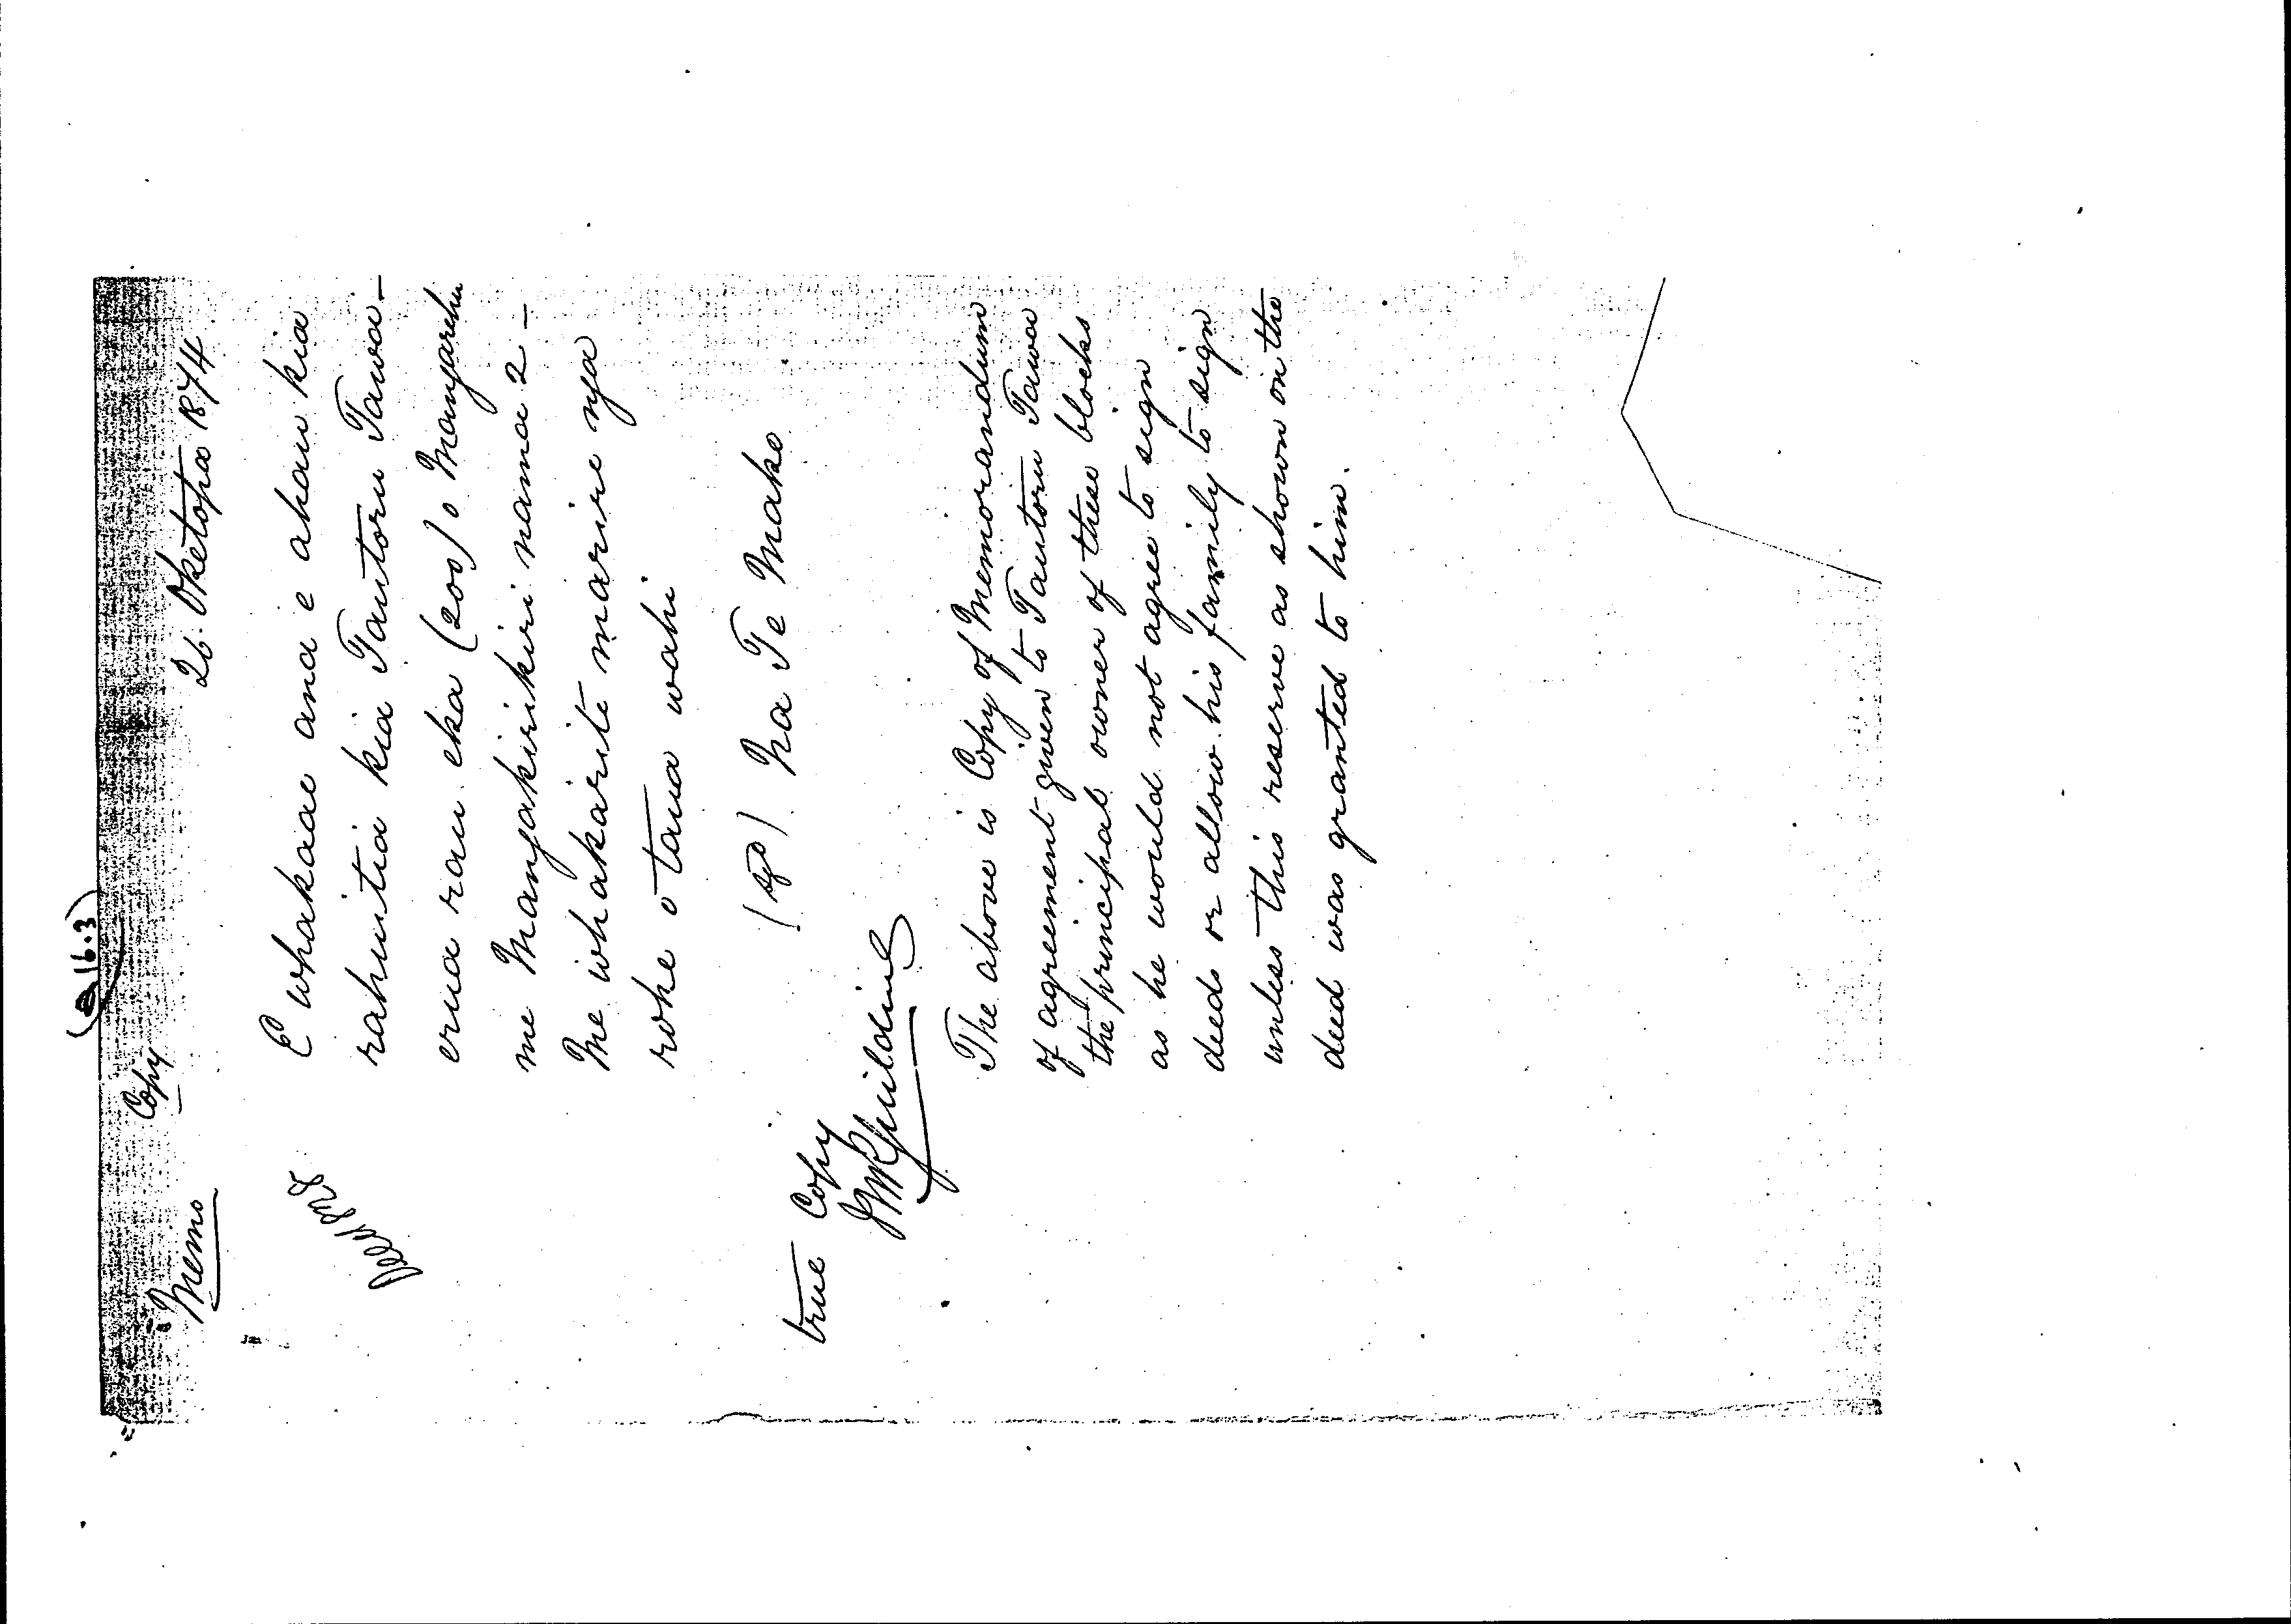 a 16.3
Copy
Memo
26 Oketopa 1874
E whakaae ana e ahau kia
rahuitia kia Tautoru Tawa –
erua rau eka (200) o Mangarehu
me Mangakirikiri nama 2 –
Me whakarite marire nga
rohe o taua wahi
(sg) Na Te Mako
true Copy
The above is Copy of Memorandum
of agreement given to Tautoru Tawa
the principal owner of these blocks
as he would not agree to sign
deeds or allow his family to sign
unless this reserve as shown on the
deed was granted to him.